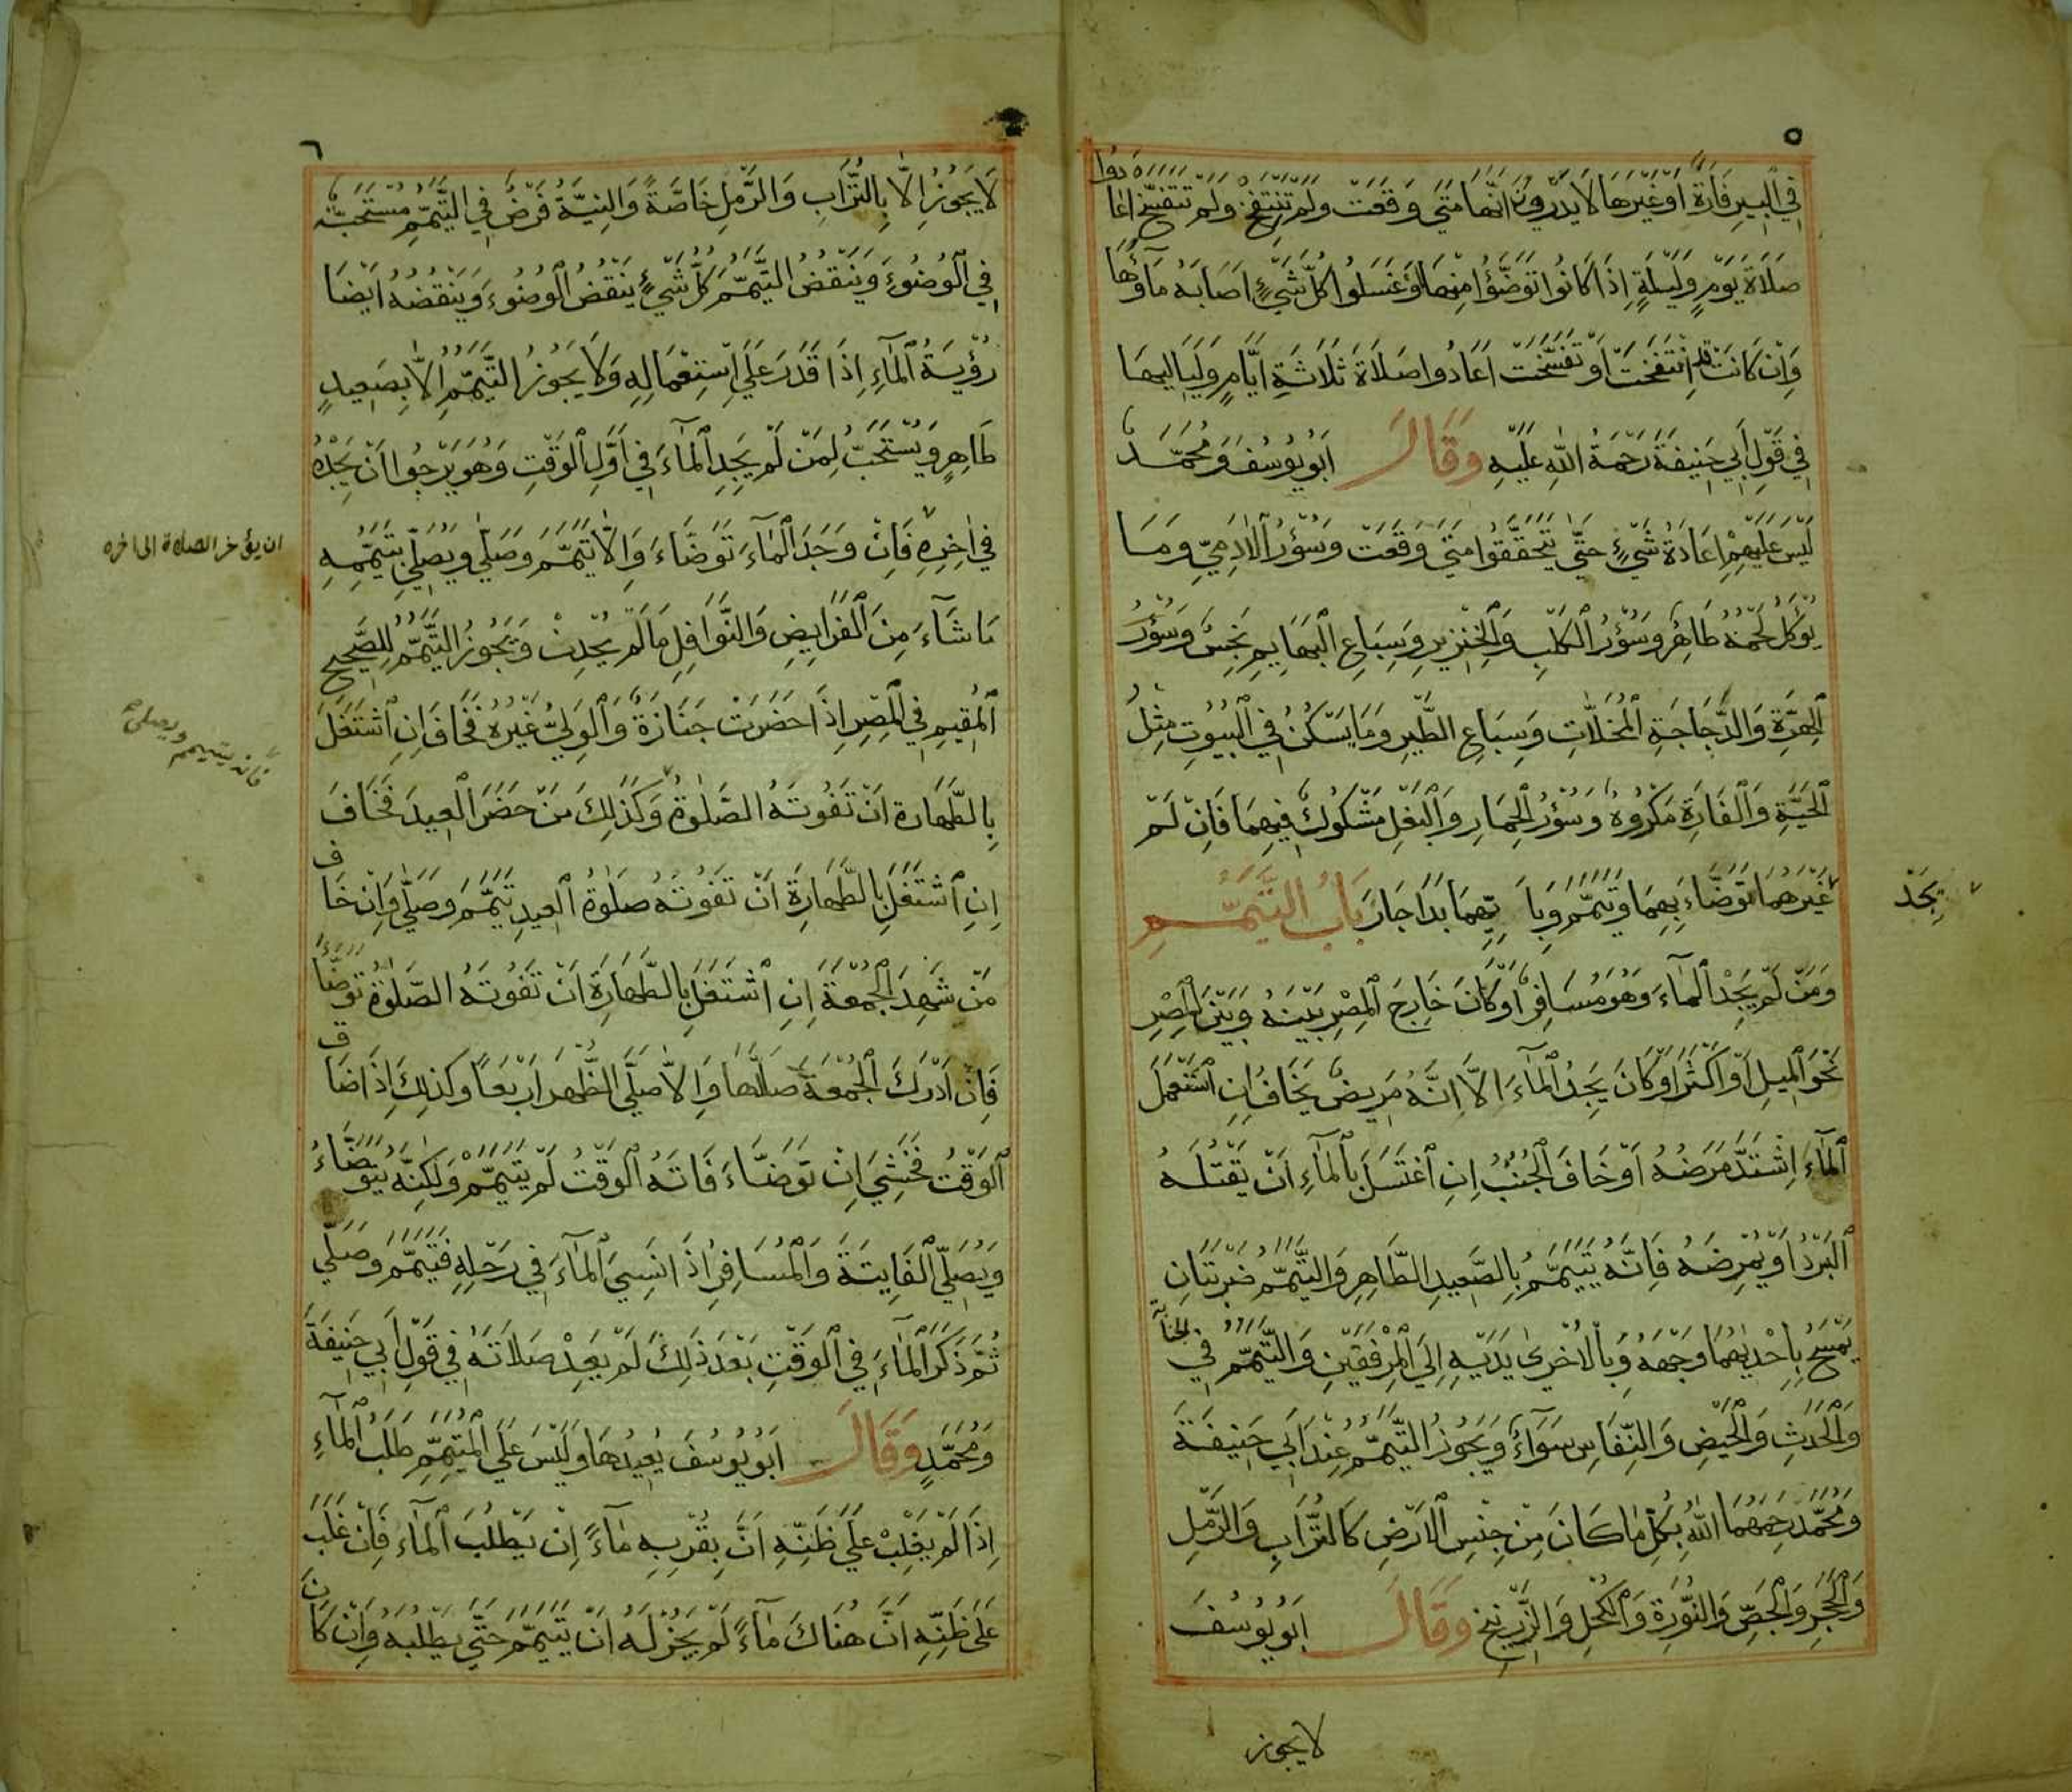 ٥
في البير فارة او غيرها لا يدرون انها متى وقعت ولم تنتفخ ولم تتفسخ اعادوا
صلاة يوم وليلة إذا كانوا توضؤا منها وغسلوا كل شيء اصابه ماؤها
وإن كانت قد انتفخت أو تفسخت اعادوا صلاة ثلاثة ايام ولياليها
في قول أبي حنيفة رحمة الله عليه وقال ابو يوسف ومحمد
ليس عليهم اعادة شيء حتى يتحققوا متى وقعت وسؤر الادمي وما
يؤكل لحمه طاهر وسؤر الكلب والخنزير وسباع البهايم نجس وسؤر
الهرة والدجاجة المخلات وسباع الطير وما يسكن في البيوت مثل
الحية والفارة مكروه وسؤر الحمار والبغل مشكوك فيهما فان لم
يجد
غيرهما توضاء بهما وتيمم وبايهما بدا جاز باب التيمم
ومن لم يجد الماء وهو مسافر أو كان خارج المصر بينه وبين المصر
نحو الميل او اكثر او كان يجد الماء الا انه مريض يخاف ان استعمل
الماء اشتد مرضه او خاف الجنب ان اغتسل بالماء ان يقتله
البرد او يمرضه فانه يتيمم بالصعيد الطاهر والتيمم ضربتان
يمسح بإحديهما وجهه وبالاخرى يديه إلى المرفقين والتيمم في الجنابة
والحدث والحيض والنفاس سواء ويجوز التيمم عند ابي حنيفة
ومحمد رحمهما الله بكل ما كان من جنس الارض كالتراب والرمل
والحجر والجص والنورة والكحل والزرنيخ وقال ابو يوسف
لا يجوز
٦
لا يجوز الا بالتراب والرمل خاصة والنية فرض في التيمم مستحبة
في الوضوء وينقض التيمم كل شيء ينقض الوضوء وينقضه ايضا
رؤية الماء إذا قدر على استعماله ولا يجوز التيمم الا بصعيد
طاهر ويستحب لمن لم يجد الماء في اول الوقت وهو يرجوا ان يجده
في اخره فان وجد الماء توضاء والا تيمم وصلى ويصلي بتيممه
ان يؤخر الصلاة الى اخره
ما شاء من الفرايض والنوافل ما لم يحدث ويجوز التيمم للصحيح
المقيم في المصر إذا حضرت جنازة والولي غيره فخاف ان اشتغل
فانه يتيمم ويصلي
بالطهارة ان تفوته الصلوة وكذلك من حضر العيد فخاف
ان اشتغل بالطهارة ان تفوته صلوة العيد تيمم وصلى وان خاف
من شهد الجمعة ان اشتغل بالطهارة ان تفوته الصلوة توضا
فان ادرك الجمعة صلاها والا صلى الظهر اربعا وكذلك إذا ضاق
الوقت فخشي ان توضاء فاته الوقت لم يتيمم ولكنه يتوضاء
ويصلي الفايتة والمسافر اذا نسي الماء في رحله فتيمم وصلى
ثم ذكر الماء في الوقت بعد ذلك لم يعد صلاته في قول أبي حنيفة
ومحمد وقال ابو يوسف يعيدها وليس على المتيمم طلب الماء
إذا لم يغلب على ظنه ان بقربه ماء ان يطلب الماء فان غلب
على ظنه ان هناك ماء لم يجز له ان يتيمم حتى يطلبه وان كان